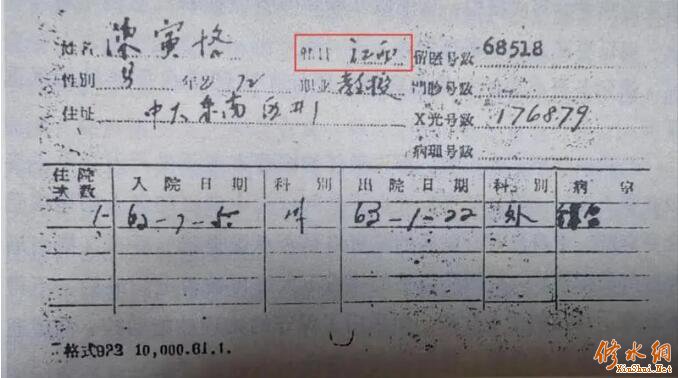 姓名 陳寅恪 江西 留医号数 68518
性别 男 年令 72 职业 教授 門診号数
住址 中大東南区#1 X光号数 176879
病理号数
住院次数 入院日期 科别 出院日期 科别 病室
1 62-7-5 外 63-1-22 外
格式922 10,000.61.1.
修水網
XiuShui.Net